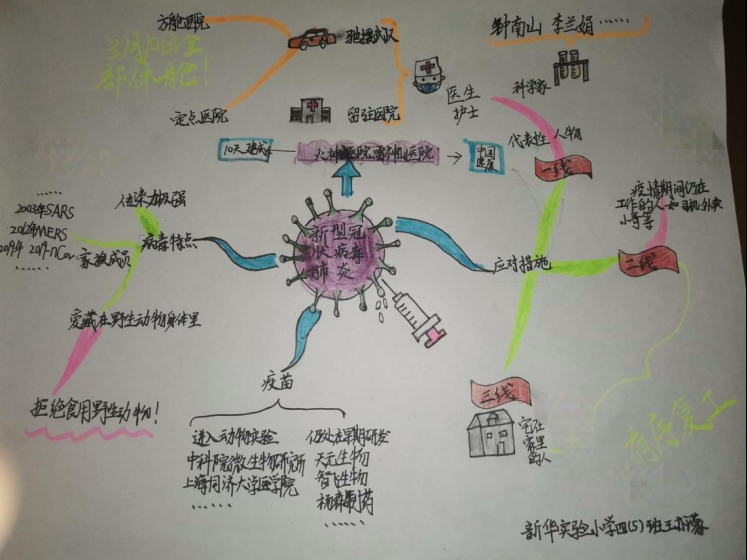 方舱医院
3月10日全
部休舱！
驰援武汉
定点医院
留驻医院
医生
护士
钟南山 李兰娟……
科学家
代表性人物
一线
10天建成
火神山医院雷神山医院
中国
速度
疫情期间仍在
工作的人—如司机外卖
小哥等
二线
应对措施
三线
宅在
家里
的人
有序复工
新型冠
状病毒
肺炎
病毒特点
传染力极强
家族成员
……
2003年SARS
2012年MERS
2019年 2019-nCoV
爱藏在野生动物身体里
拒绝食用野生动物！
疫苗
进入动物实验
中科院微生物研究所
上海同济大学医学院
……
仍处在早期研发
天元生物
智飞生物
杨森制药
……
新华实验小学四(5)班王